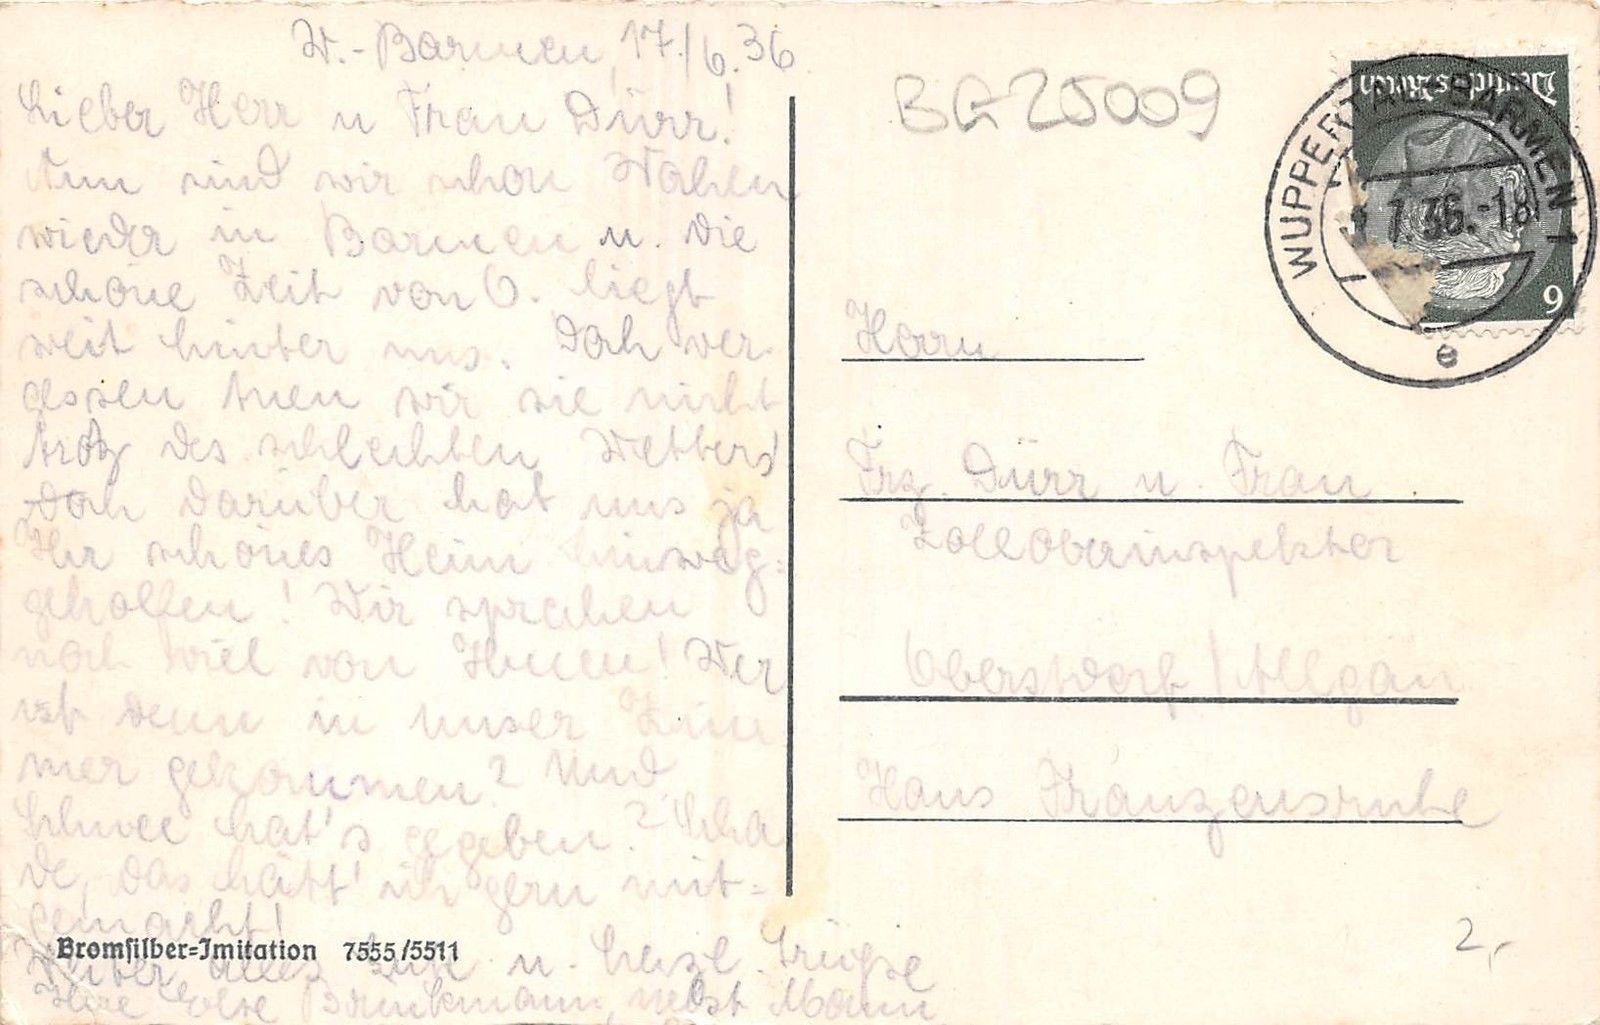 W.-Barmen, 17/6.36
Lieber Herr u Frau Dürr!
Nun sind wir schon Wochen
wieder in Barmen u. die
schöne Zeit von O. liegt
weit hinter uns. Doch ver-
gessen tuen wir sie nicht
trotz des schlechten Wetters!
Doch darüber hat uns ja
Ihr schönes Heim hinweg-
geholfen! Wir sprachen
noch viel von Ihnen! Wer
ist denn in unser Zim
mer gekommen? Und
Schnee hat's gegeben? Scha
de, das hätt' ich gern mit-
gemacht!
alles u. herzl. Grüße
Ihre Else Brinkmann, nebst Mann
Bromsilber-Imitation 7555/5511
BG25009
Deutsches Reich
6
WUPPERTAL-BARMEN 1
7.36.-18
e
Herrn
Frz. Dürr u. Frau
Zolloberinspektor
Oberstdorf/Allgäu
Haus Franzensruhe
2,-